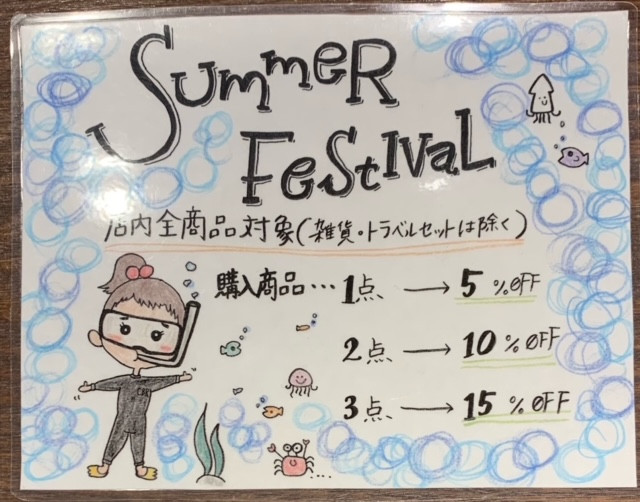 Summer
Festival
店内全商品対象(雑貨・トラベルセットは除く)
購入商品…1点→5%OFF
2点→10%OFF
3点→15%OFF